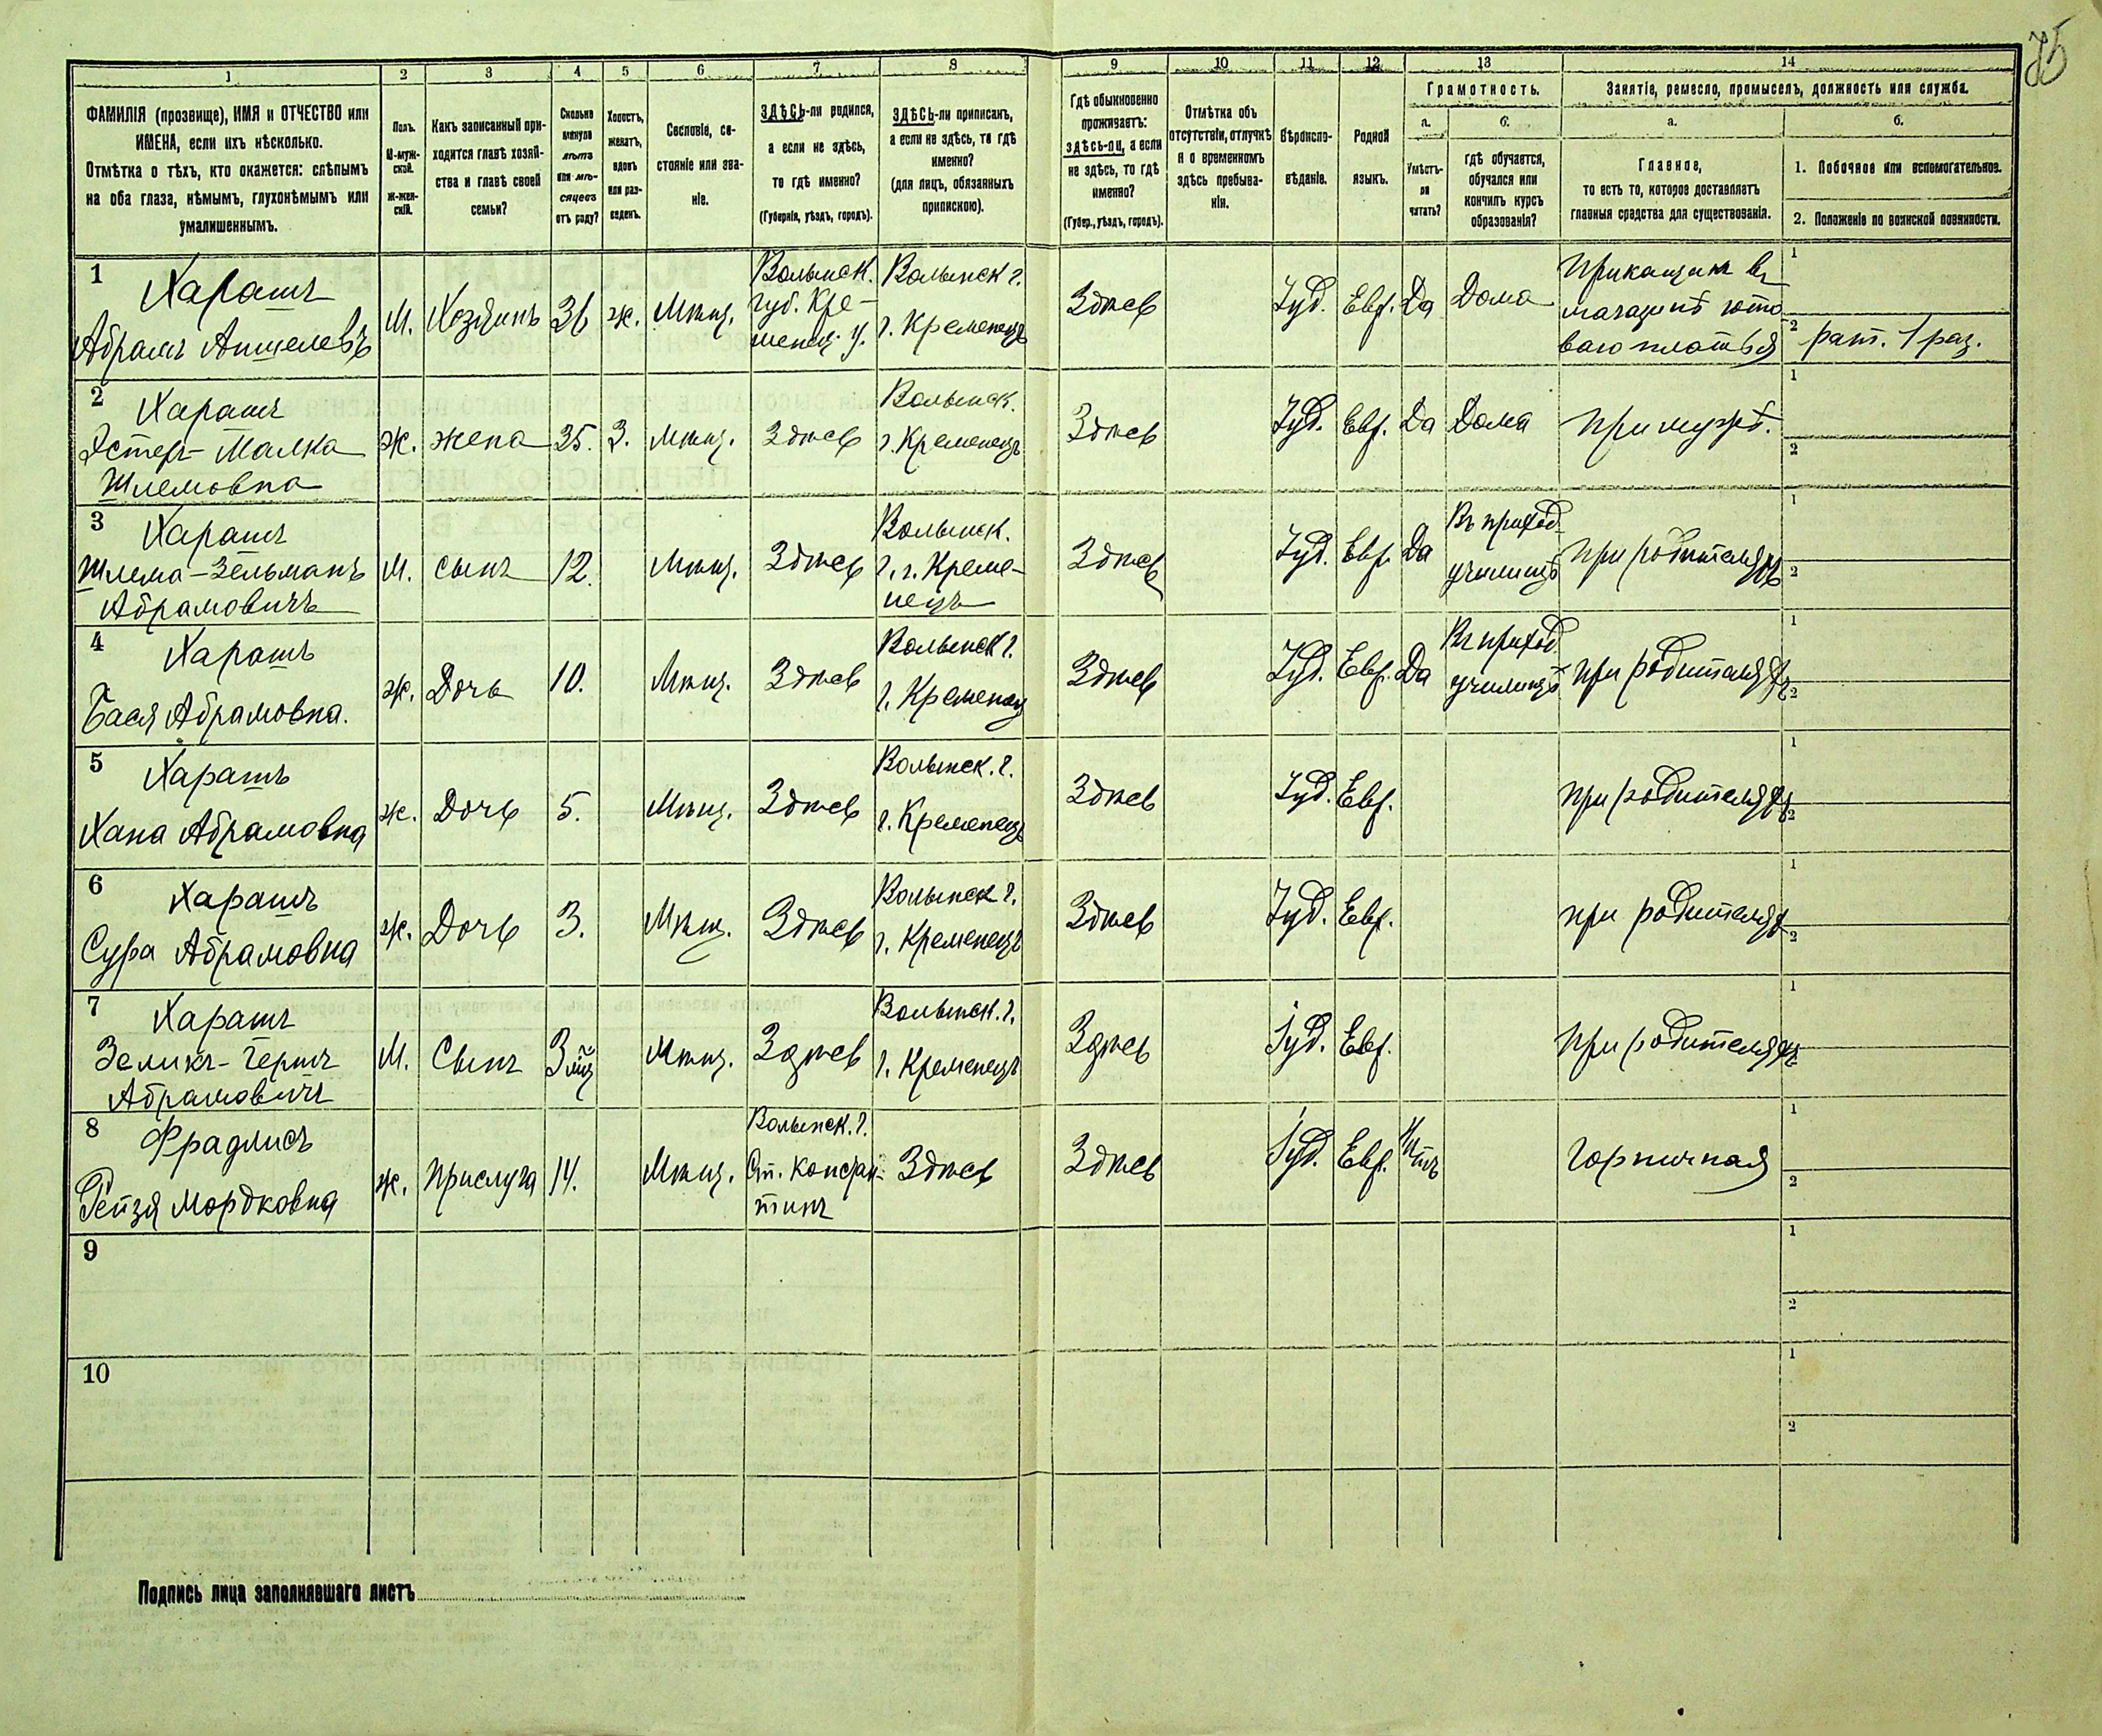 85
1 2 3 4 5 6 7 8 9 10 11 12 13 14
ФАМИЛІЯ (прозвище), ИМЯ и ОТЧЕСТВО или
ИМЕНА, если ихъ нѣсколько.
Отмѣтка о тѣхъ, кто окажется: слѣпымъ
на оба глаза, нѣмымъ, глухонѣмымъ или
умалишеннымъ.
Полъ.
М-муж-
ской.
Ж-жен-
скій.
Какъ записанный при-
ходится главѣ хозяй-
ства и главѣ своей
семьи?
Сколько
минуло
лѣтъ
или мѣ-
сяцевъ
отъ роду?
Холостъ,
женатъ,
вдовъ
или раз-
веденъ.
Сословіе, со-
стояніе или зва-
ніе.
ЗДѢСЬ-ли родился,
а если не здѣсь,
то гдѣ именно?
(Губернія, уѣздъ, городъ).
ЗДѢСЬ-ли приписанъ,
а если не здѣсь, то гдѣ
именно?
(для лицъ, обязанныхъ
припискою).
Гдѣ обыкновенно
проживаетъ:
здѣсь-ли, а если
не здѣсь, то гдѣ
именно?
(Губер., уѣздъ, городъ).
Отмѣтка объ
отсутствіи, отлучкѣ
и о временномъ
здѣсь пребыва-
ніи.
Вѣроиспо-
вѣданіе.
Родной
языкъ.
Грамотность.
а.
Умѣетъ-
ли
читать?
б.
гдѣ обучается,
обучался или
кончилъ курсъ
образованія?
Занятіе, ремесло, промыселъ, должность или служба.
а.
Главное,
то есть то, которое доставляетъ
главныя средства для существованія.
б.
1. Побочное или вспомогательное.
2. Положеніе по воинской повинности.
1
Харашъ
Абрамъ Аншелевъ
М.
Хозяинъ
36
ж.
Мѣщ.
Волынск.
губ. Кре-
менец. у.
Волынск г.
г. Кременецъ
Здѣсь
Іуд.
Евр.
Да
Дома
Прикащикъ въ
магазинѣ гото
ваго платья
1
2 рат. 1 раз.
2
Харашъ
Эстеръ-Малка
Шлемовна
ж.
жена
35.
З.
Мѣщ.
Здѣсь
Волынск.
г. Кременецъ
Здѣсь
Іуд.
Евр.
Да
Дома
При мужѣ.
1
2
3
Харашъ
Шлема-Зельманъ
Абрамовичъ
М.
сынъ
12.
Мѣщ.
Здѣсь
Волынск.
г. г. Креме-
нецъ
Здѣсь
Іуд.
Евр.
Да
Въ приход.
училищѣ
при родителяхъ
1
2
4
Харашъ
Бася Абрамовна.
ж.
Дочь
10.
Мѣщ.
Здѣсь
Волынск г.
г. Кременец
Здѣсь
Іуд.
Евр.
Да
Въ приход.
училищѣ
при родителяхъ
1
2
5
Харашъ
Хана Абрамовна
ж.
Дочь
5.
Мѣщ.
Здѣсь
Волынск. г.
г. Кременецъ
Здѣсь
Іуд.
Евр.
при родителяхъ
1
2
6
Харашъ
Сура Абрамовна
ж.
Дочь
3.
Мѣщ.
Здѣсь
Волынск г.
г. Кременецъ
Здѣсь
Іуд.
Евр.
при родителях
1
2
7
Харашъ
Зеликъ-Гершъ
Абрамовичъ
М.
Сынъ
3 мц
Мѣщ.
Здѣсь
Волынск. г.
г. Кременецъ
Здѣсь
Іуд.
Евр.
при родителяхъ
1
2
8
Фрадлисъ
Рейзя Мордковна
ж.
Прислуга
14.
Мѣщ.
Волынск. г.
Ст. Констан-
тинъ
Здѣсь
Здѣсь
Іуд.
Евр.
Нѣтъ
Горничная
1
2
9
1
2
10
1
2
Подпись лица заполнявшаго листъ